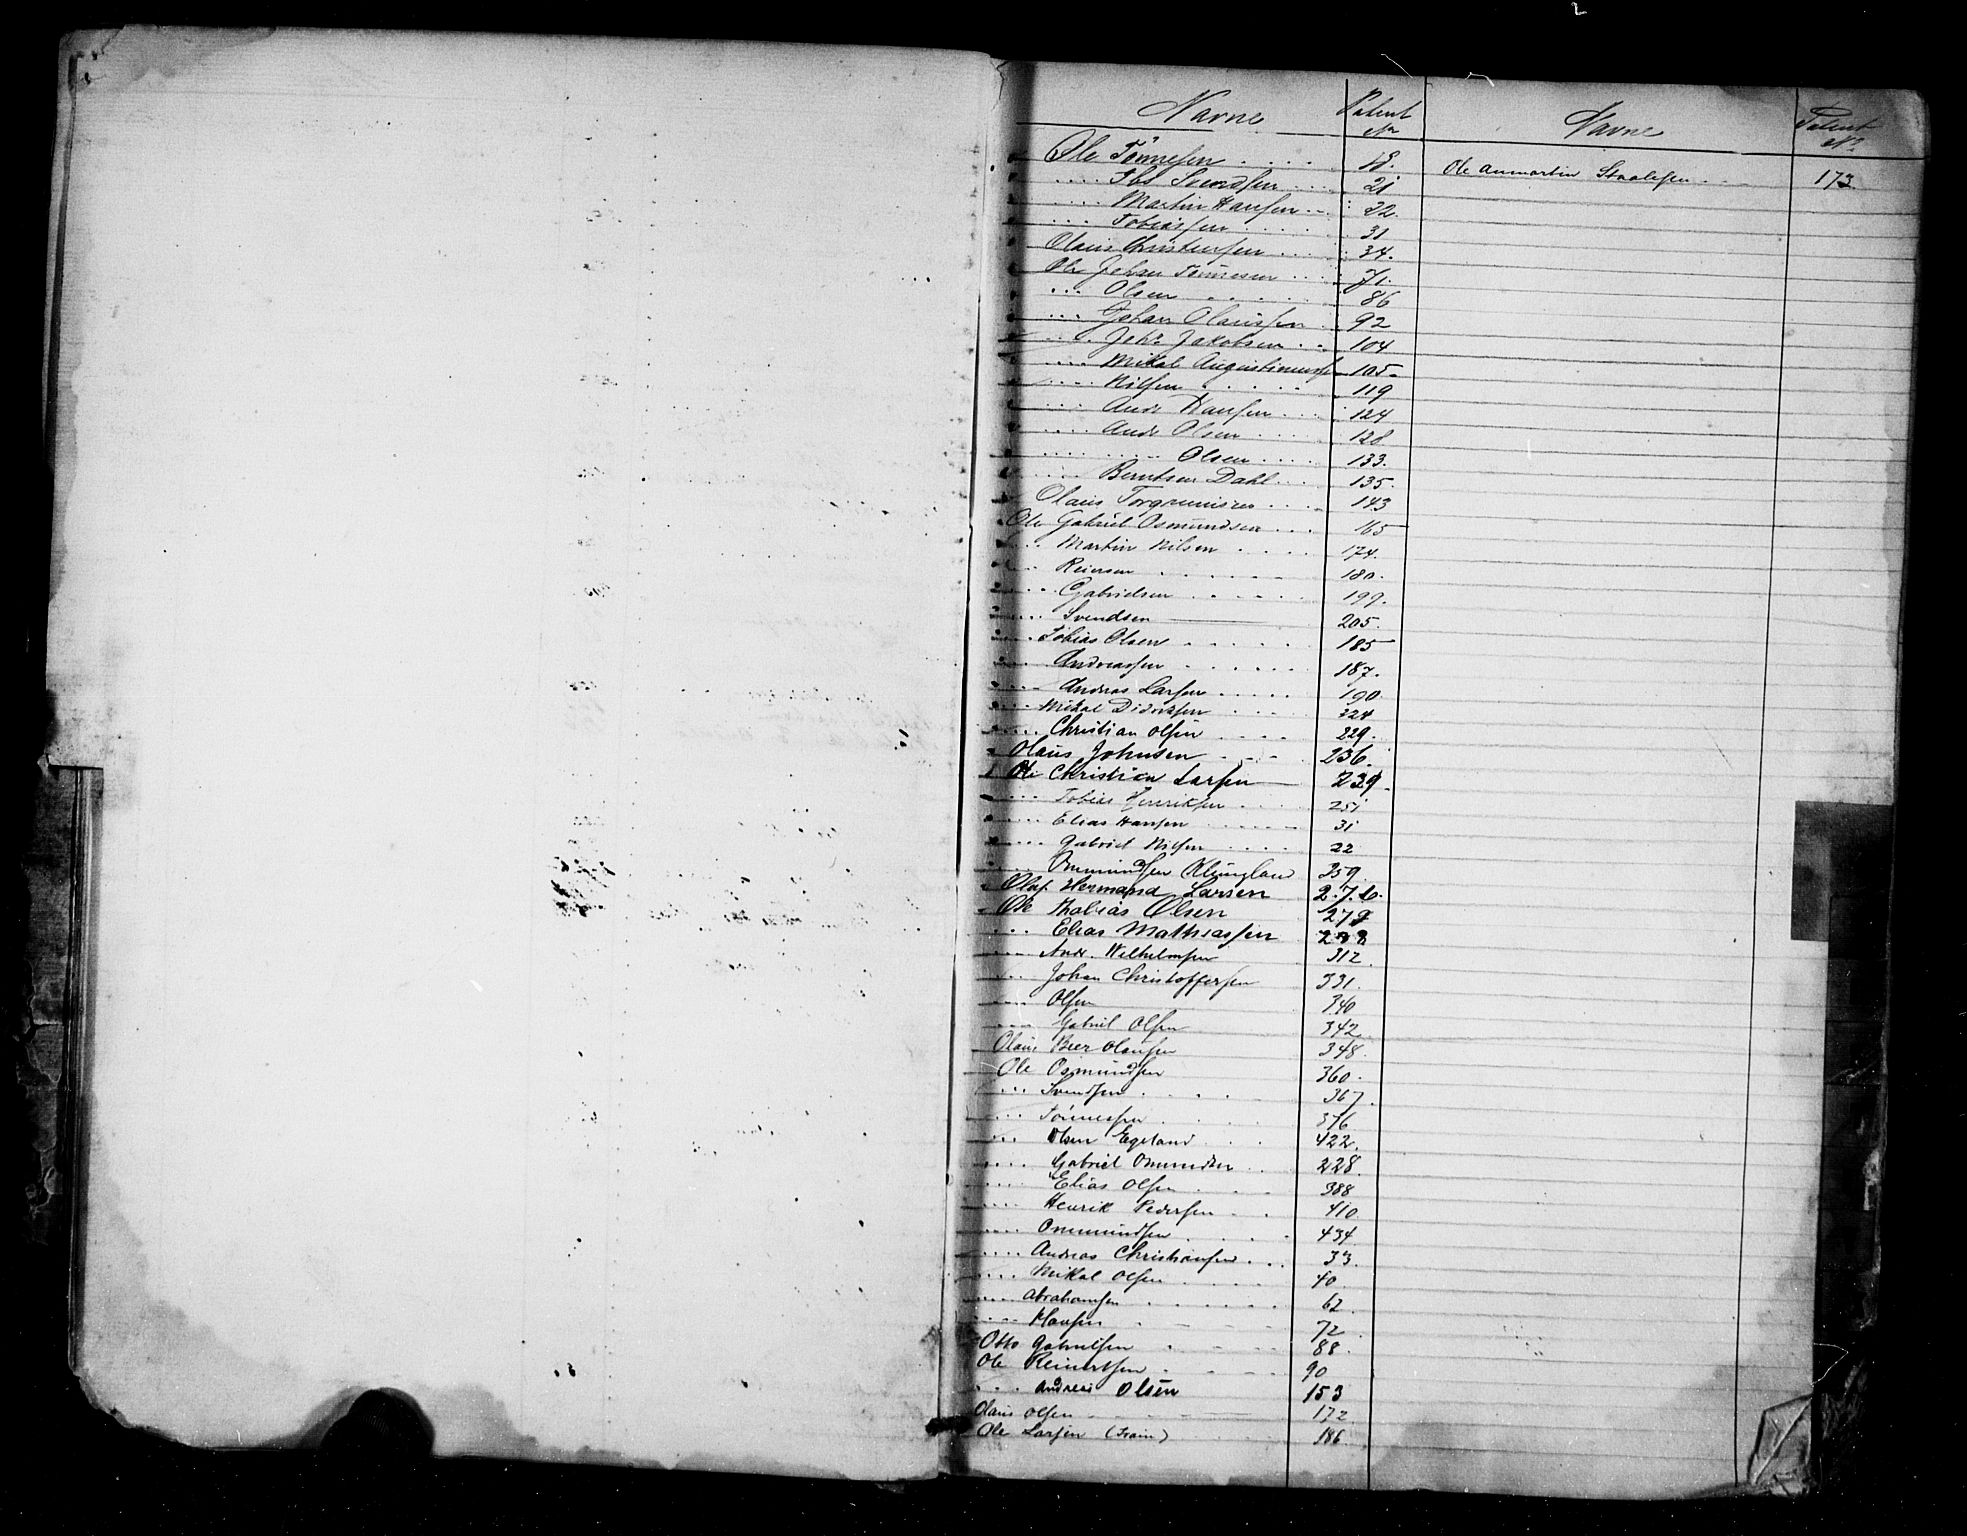 Navne Patent No
Ole Tönnesen . . . . 18.
.... Ibs Svendsen . . . 21
.... Martin Hansen . . . 32.
.... Tobiassen . . . . 31
Olaus Christensen . . . . 34.
Ole Johan Tönnesen . . . . 71.
.... Olsen . . . . . 86
.... Johan Olaussen . 92
.... Johs Jakobsen . . 104
.... Mikal Augustinussen 105.
.... Nilsen . . . . . 119
.... Andr Hansen . . . 124
.... Andr Olsen . . . . 128
.... .... Olsen . . . . 133.
.... Berntsen Dahl . . . 135.
Olaus Torgrimsen . . . . 143
Ole Gabriel Osmundsen . . . 165
.... Martin Nilsen . . . . 174.
.... Reiersen . . . . . . 180.
.... Gabrielsen . . . . . . 199.
.... Svendsen 205.
.... Tobias Olsen . . . . . . 185
.... Andreassen . . . . . . 187.
.... Andreas Larsen . . . . . 190.
.... Mikal Didriksen . . . . 324
.... Christian Olsen . . . . 229.
Olaus Johnsen . . . . 236.
Ole Christian Larsen 239.
.... Tobias Henriksen . . . . 251
.... Elias Hansen . . . . . 31
.... Gabriel Nilsen . . . . 22
.... Ommundsen Klungland 359.
Olaf Hermand Larsen 276.
Ole Thobias Olsen 279
.... Elias Mathiassen 298
.... Andr. Wilhelmsen 312.
.... Johan Christoffersen 331.
.... Olsen 340
.... Gabriel Olsen 342.
Olaus Beer Olausen 348.
Ole Osmundsen 360.
.... Svendsen . . . . . 367.
.... Tönnessen . . . . . 376
.... Olsen Egeland . . . 422.
.... Gabriel Omundsen . . 228.
.... Elias Olsen . . . . 388
.... Henrik Pedersen . . . 410.
.... Ommundsen . . . . . 434.
.... Andreas Christiansen . . . 33.
.... Mikal Olsen . . . . . 40.
.... Abrahamsen . . . . . . 62.
.... Hansen . . . . . . 72.
Otto Gabrielsen . . . . 88.
Ole Reinertsen . . . . . 90
.... Andreas Olsen 153
Olaus Olsen 172
Ole Larsen 186.
Navne Patent No
Ole Anmartin Staalesen . . . . 173